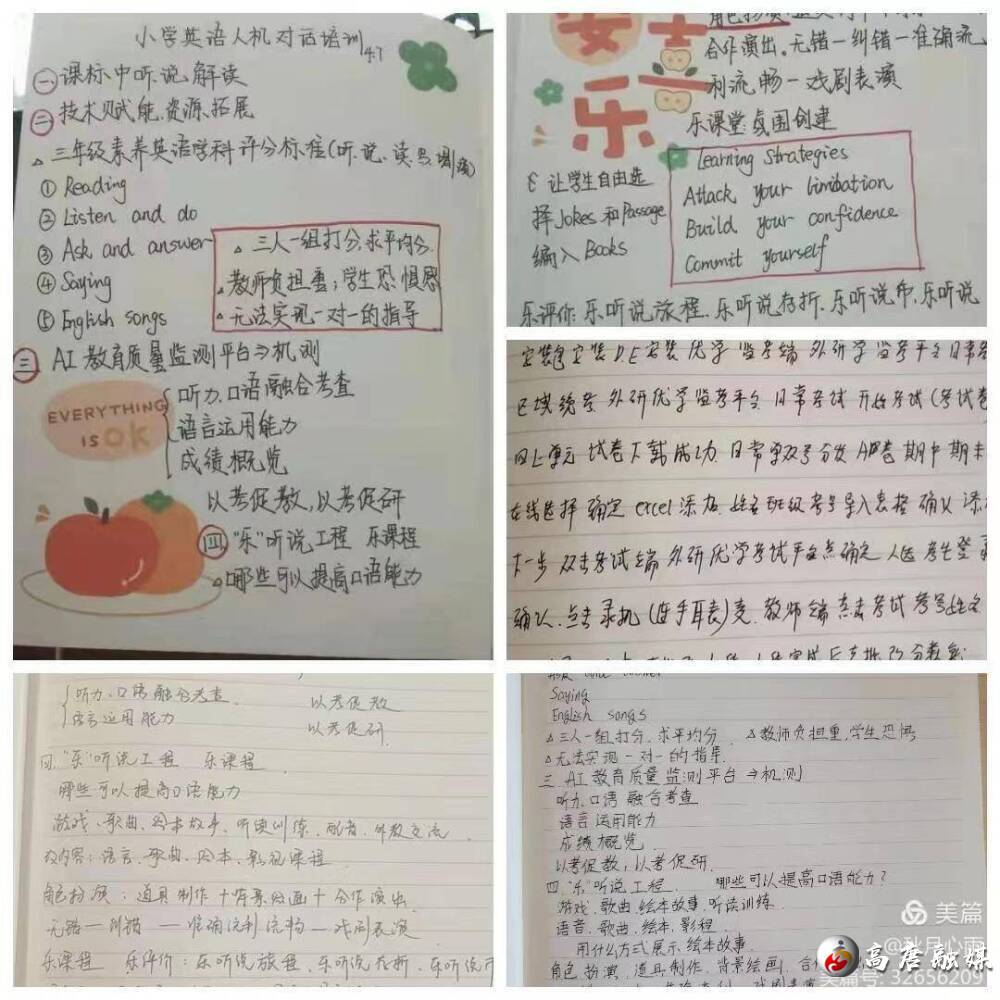 小学英语人机对话培训
4.7
一 课标中听、说解读
二 技术赋能,资源拓展
△ 三年级素养英语学科评分标准(听、说、读
① Reading
② Listen and do
③ Ask and answer
④ Saying
⑤ English songs
△ 三人一组打分,求平均分.
·教师负担重;学生恐惧感
△ 无法实现一对一的指导
三 AI教育质量监测平台⇒机测
EVERYTHING
IS OK
听力、口语融合考查
语言运用能力
成绩概览
以考促教,以考促研
四 "乐"听说工程 乐课程
△哪些可以提高口语能力
安
吉
乐
合作演出、无错—纠错—准确流
利流畅—戏剧表演
乐课堂:氛围创建
让学生自由选
择Jokes和Passage
编入Books
Learning Strategies
Attack your limibation
Build your confidence
Commit yourself
乐评价:乐听说旅程、乐听说存折、乐听说币、乐听说
安装包安装 D.E 安装优学监考端 外研学监考平台日常
区域统考 外研优学监考平台 日常考试 开始考试(考试卷
网上单元 试卷下载成功. 日常单双号分发AB卷 期中期末
在线选择 确定 excel添加. 姓名班级考号导入表格 确认
下一步 双击考试端 外研优学考试平台点确定 考生登录
确认.点击录机(连手耳表)麦. 教师端点击考试 考号姓名
听力、口语融合考查. 以考促教
语言运用能力 以考促研.
四."乐"听说工程 乐课程
哪些可以提高口语能力
游戏、歌曲、绘本故事、听读训练、配音、外教交流.
内容:语言、歌曲、绘本、影视课程
角色扮演:道具制作+背景绘画+合作演出
无错—纠错—准确流利流畅—戏剧表演
乐课程 乐评价:乐听说旅程、乐听说存折、乐听说币
Saying
English songs
△三人一组打分、求平均分. △教师负担重,学生恐惧
△无法实现一对一的指导.
三.AI教育质量监测平台⇒机测
听力.口语融合考查
语言运用能力
成绩概览
以考促教,以考促研.
四."乐"听说工程. 哪些可以提高口语能力?
游戏.歌曲.绘本故事.听读训练.
语音.歌曲.绘本.影程.
用什么方式展示绘本故事.
角色扮演,道具制作.背景绘画.
美篇
@秋月心雨
美篇号: 32656209
高唐融媒